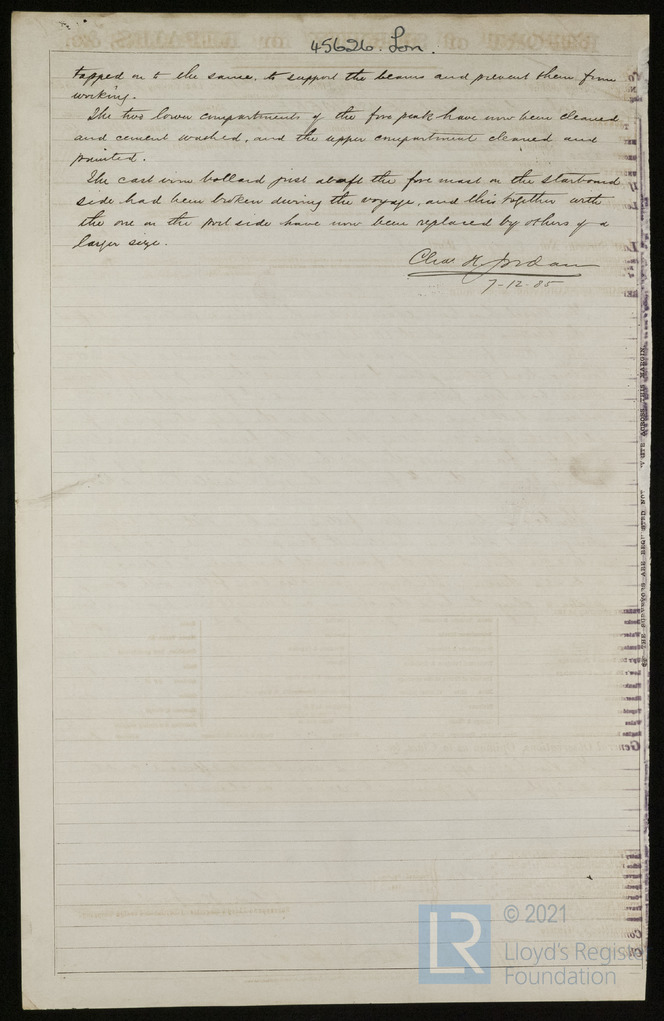 45626. Lon.
tapped on to the same, to support the beams and prevent them from
working.
The two lower compartments of the fore peak have now been cleaned
and cement washed, and the upper compartment cleaned and
painted.
The cast iron bollard just abaft the fore mast on the starboard
side had been broken during the voyage, and this together with
the one on the port side have now been replaced by others of a
larger size.
Chas H Jordan
7-12-85
THE SURVEYORS ARE REQUESTED NOT WRITE ACROSS THIS MARGIN
© 2021
LR
Lloyd's Register
Foundation